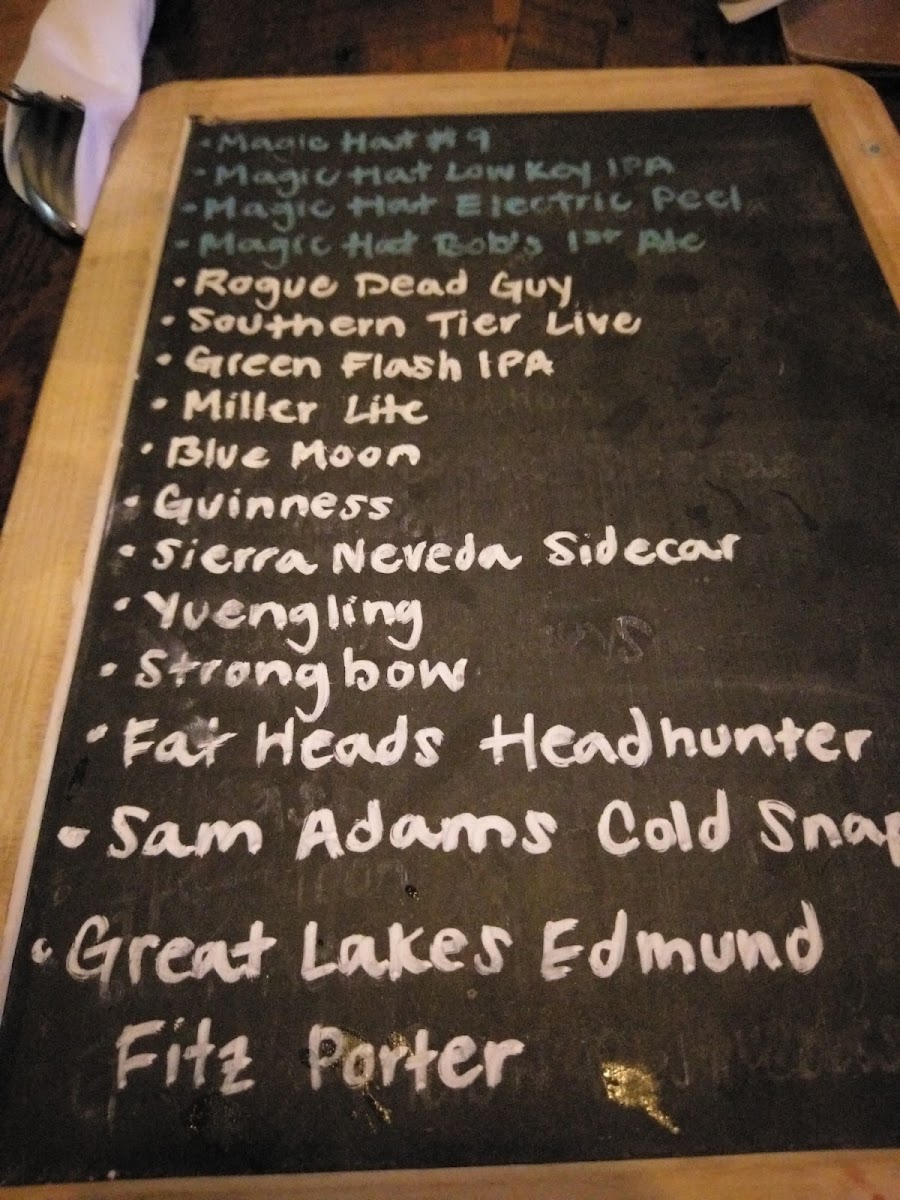 • Magic Hat #9
• Magic Hat Low Key IPA
• Magic Hat Electric Peel
• Magic Hat Bob's 1st Ale
• Rogue Dead Guy
• Southern Tier Live
• Green Flash IPA
• Miller Lite
• Blue Moon
• Guinness
• Sierra Neveda Sidecar
• Yuengling
• Strongbow
• Fat Heads Headhunter
• Sam Adams Cold Snap
• Great Lakes Edmund
Fitz Porter